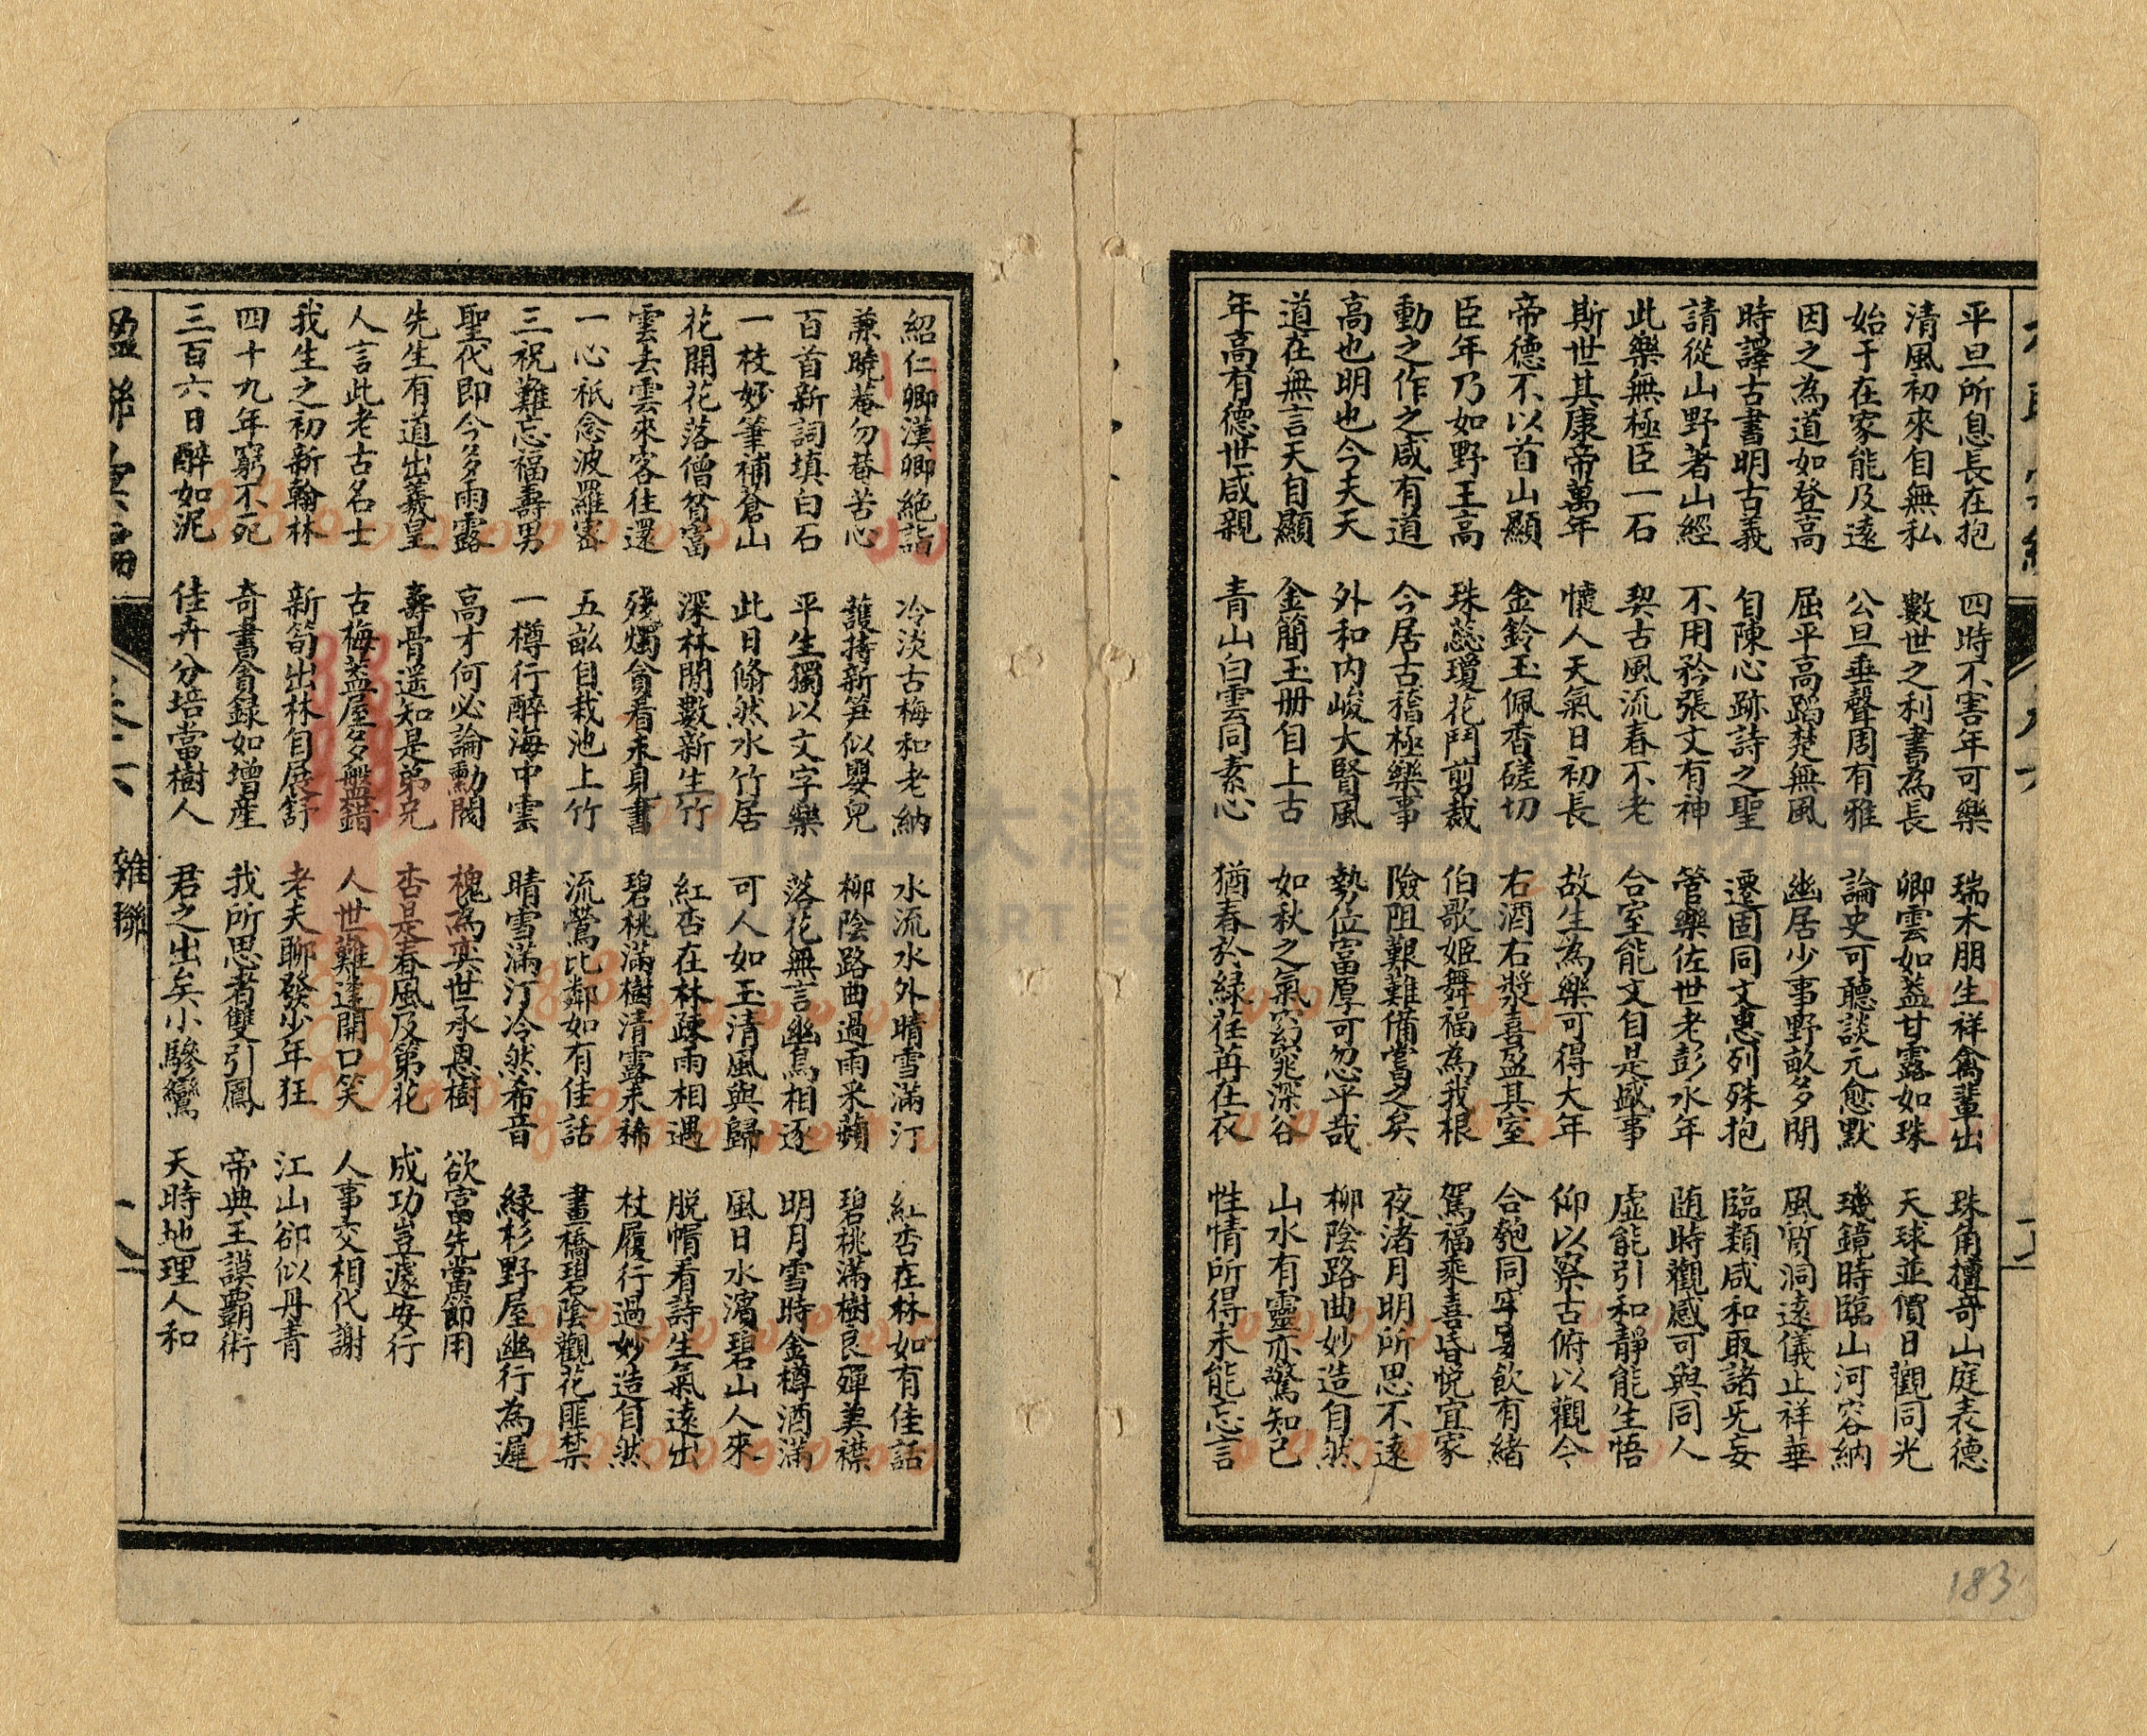 平旦所息長在抱 四時不害年可樂 瑞木朋生祥禽輩出 珠角擅奇山庭表德
清風初來自無私 數世之利書為長 卿雲如蓋甘露如珠 天球並價日觀同光
始于在家能及遠 公旦垂聲周有雅 論史可聽談元愈默 璣鏡時臨山河容納
因之為道如登高 屈平高蹈楚無風 幽居少事野畝多閒 風宵洞遠儀止祥華
時譯古書明古義 自陳心跡詩之聖 遷固同文惠列殊抱 臨類咸和取諸无妄
請從山野著山經 不用矜張文有神 管樂佐世老彭永年 随時觀感可與同人
此樂無極臣一石 契古風流春不老 合室能文自是盛事 虛能引和靜能生悟
斯世其康帝萬年 懷人天氣日初長 故生為樂可得大年 仰以察古俯以觀今
帝德不以首山顯 金鈴玉佩香磋切 右酒右漿喜盈其室 合匏同牢宴飲有緒
臣年乃如野王高 珠蕊瓊花鬥剪裁 伯歌姬舞福為我根 駕福乘喜昏悅宜家
動之作之咸有道 今居古稽極樂事 險阻艱難備嘗之矣 夜渚月明所思不遠
高也明也今夫天 外和内峻大賢風 勢位富厚可忽乎哉 柳陰路曲妙造自然
道在無言天自顯 金簡玉册自上古 如秋之氣窈窕深谷 山水有靈亦驚知己
年高有德世咸親 青山白雲同素心 猶春於緑荏苒在衣 性情所得未能忘言
紹仁卿漢卿絶詣 冷淡古梅和老衲 水流水外晴雪滿汀 紅杏在林如有佳話
兼曉菴勿菴苦心 護持新笋似嬰兒 柳陰路曲過雨采蘋 碧桃滿樹良殫美襟
百首新詞填白石 平生獨以文字樂 落花無言幽鳥相逐 明月雪時金樽酒滿
一枝妙筆補蒼山 此日翛然水竹居 可人如玉清風與歸 風日水濱碧山人來
花開花落僧貧富 深林閒數新生竹 紅杏在林疎雨相遇 脱帽看詩生氣遠出
雲去雲來客往還 殘燭貪看未見書 碧桃滿樹清露未稀 杖履行過妙造自然
一心祇念波羅密 五畝自栽池上竹 流鶯比鄰如有佳話 畫橋碧陰觀花匪禁
三祝難忘福壽男 一樽行醉海中雲 晴雪滿汀冷然希音 緑杉野屋幽行為遲
聖代即今多雨露 高才何必論勳閥 槐為奕世承恩樹 欲富先當節用
先生有道出羲皇 壽骨遥知是弟兄 杏是春風及第花 成功豈遽安行
人言此老古名士 古梅蓋屋多盤錯 人世難逢開口笑 人事交相代謝
我生之初新翰林 新筍出林自展舒 老夫聊發少年狂 江山卻似丹青
四十九年窮不死 奇書貪録如增産 我所思者雙引鳳 帝典王謨霸術
三百六日醉如泥 佳卉分培當樹人 君之出矣小驂鸞 天時地理人和
雜聯
183